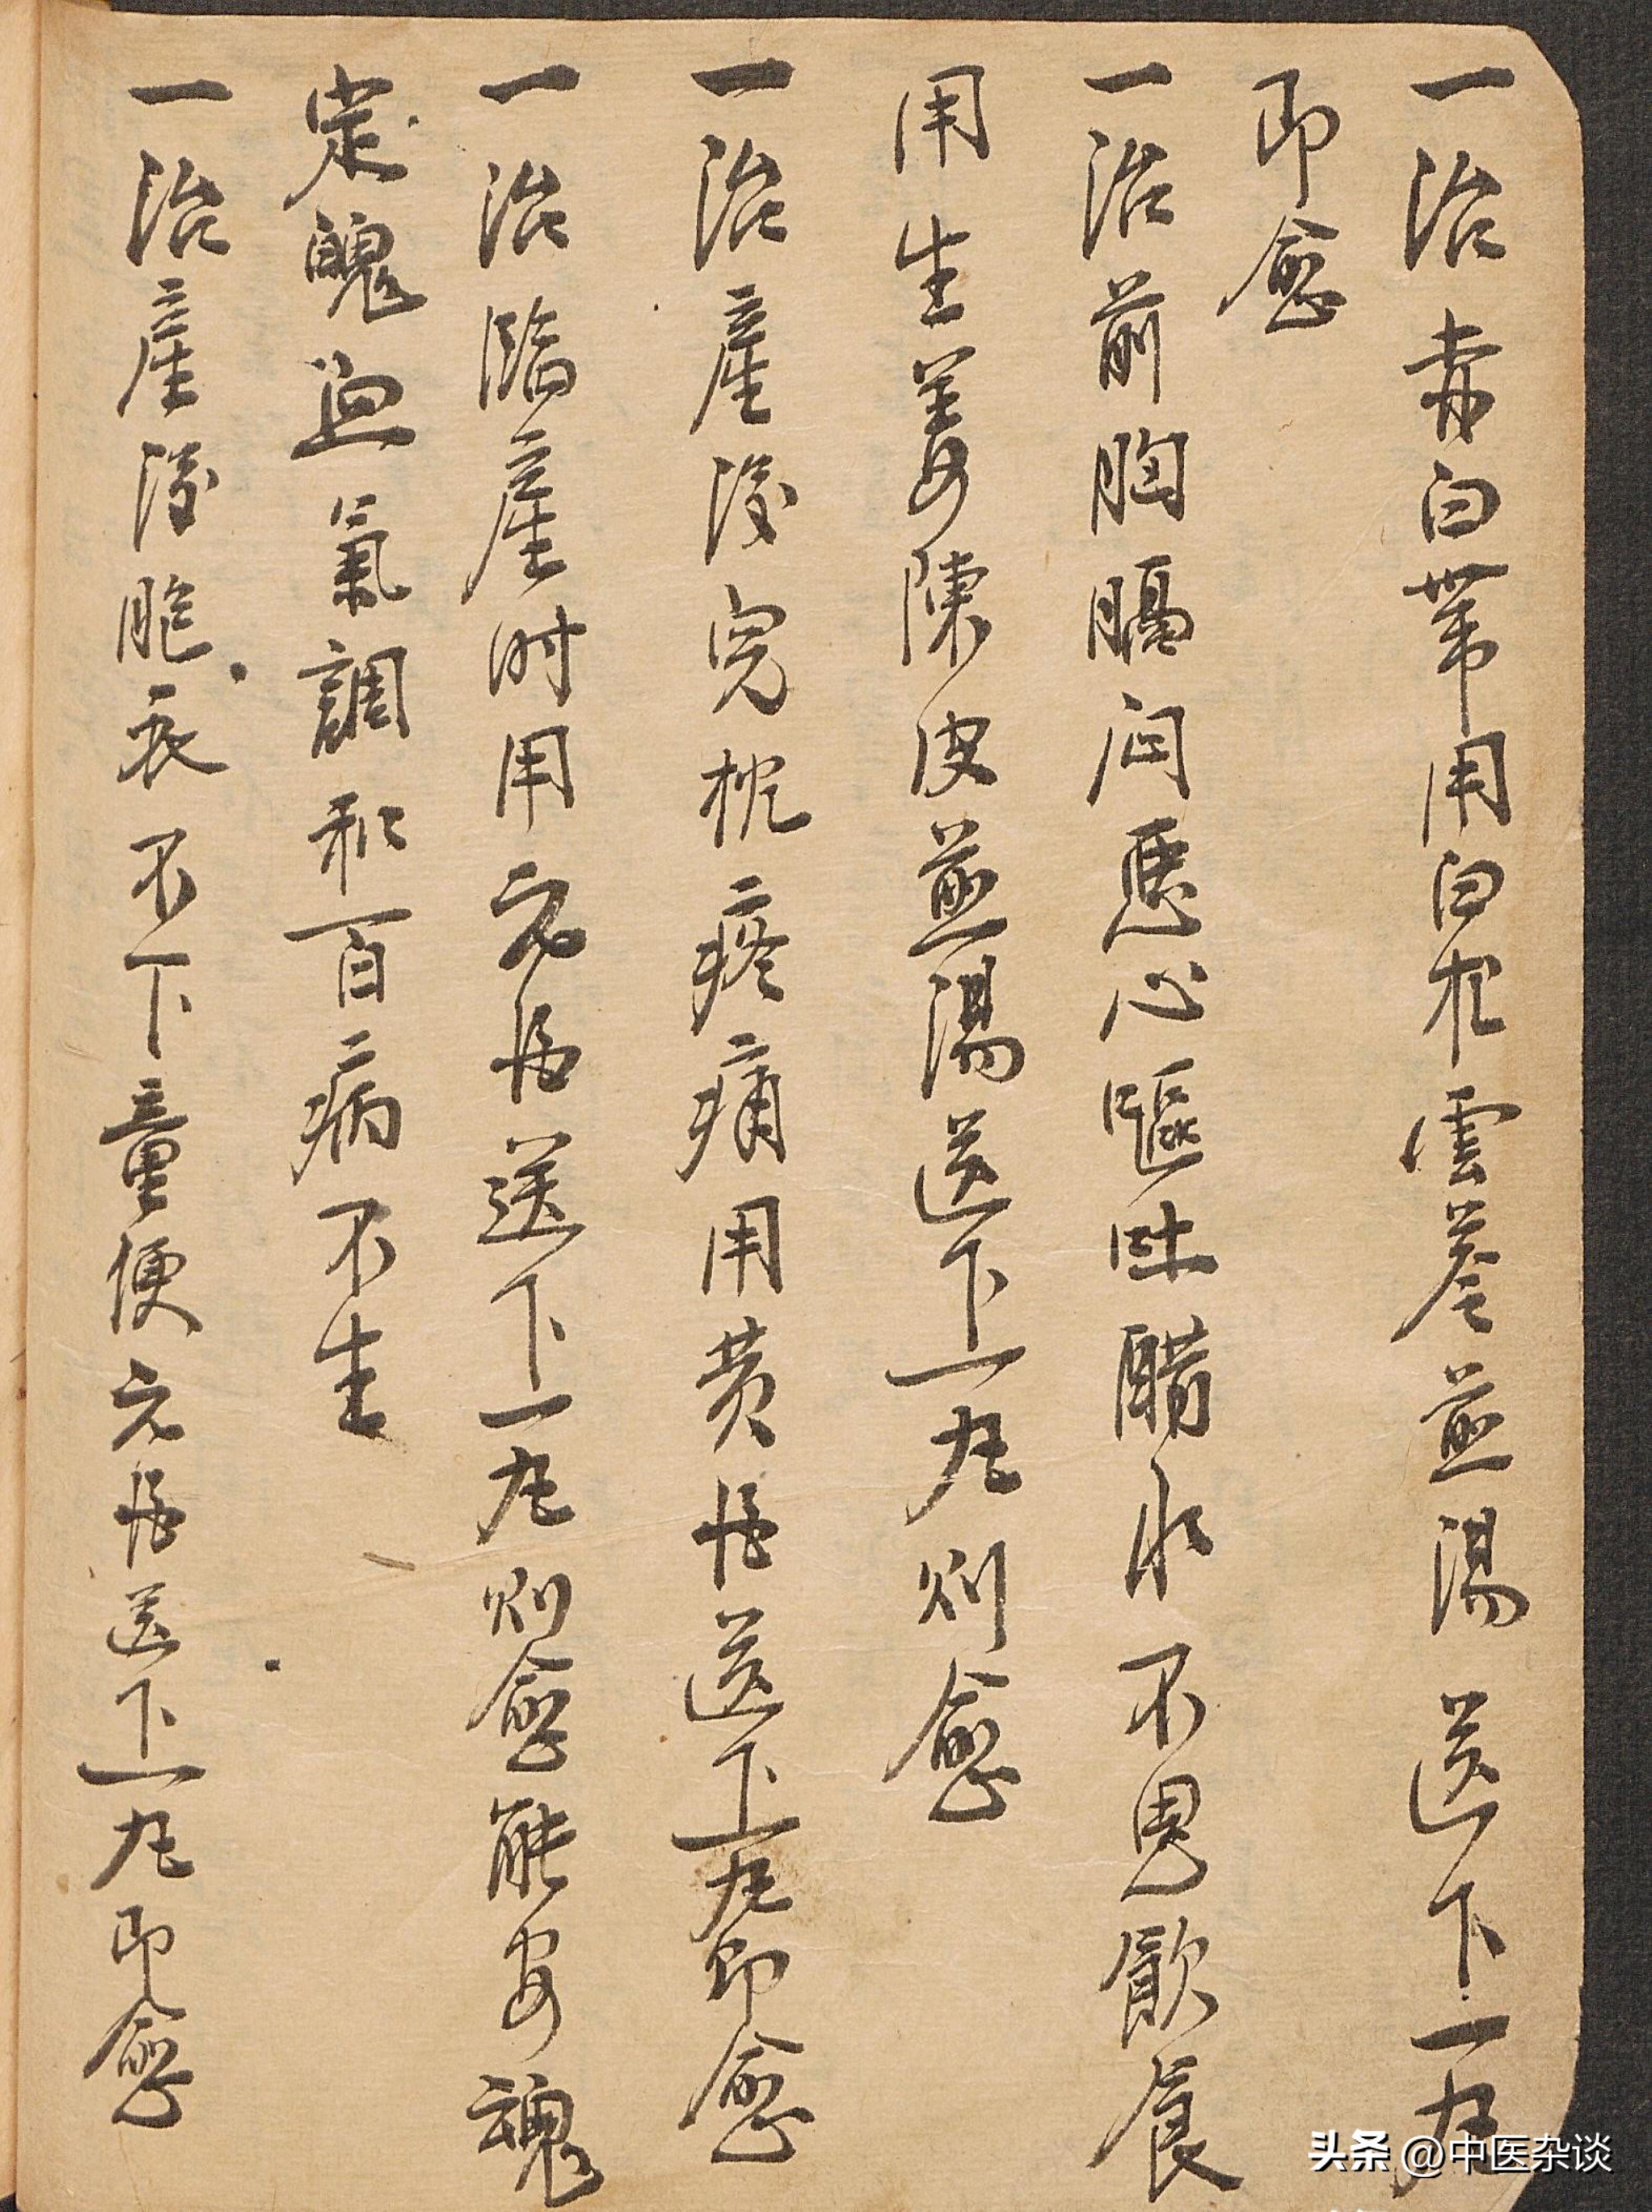 一治赤白帶用白朮雲苓煎湯送下一丸
即愈
一治前胸膈闷悪心嘔吐醋水不思飲食
用生姜陳皮煎湯送下一丸则愈
一治產後兒枕疼痛用黄酒送下一丸即愈
一治臨產时用元酒送下一丸则愈能安魂
定魄血氣調和百病不生
一治產後胞衣不下童便元酒送下一丸即愈
头条 @中医杂谈